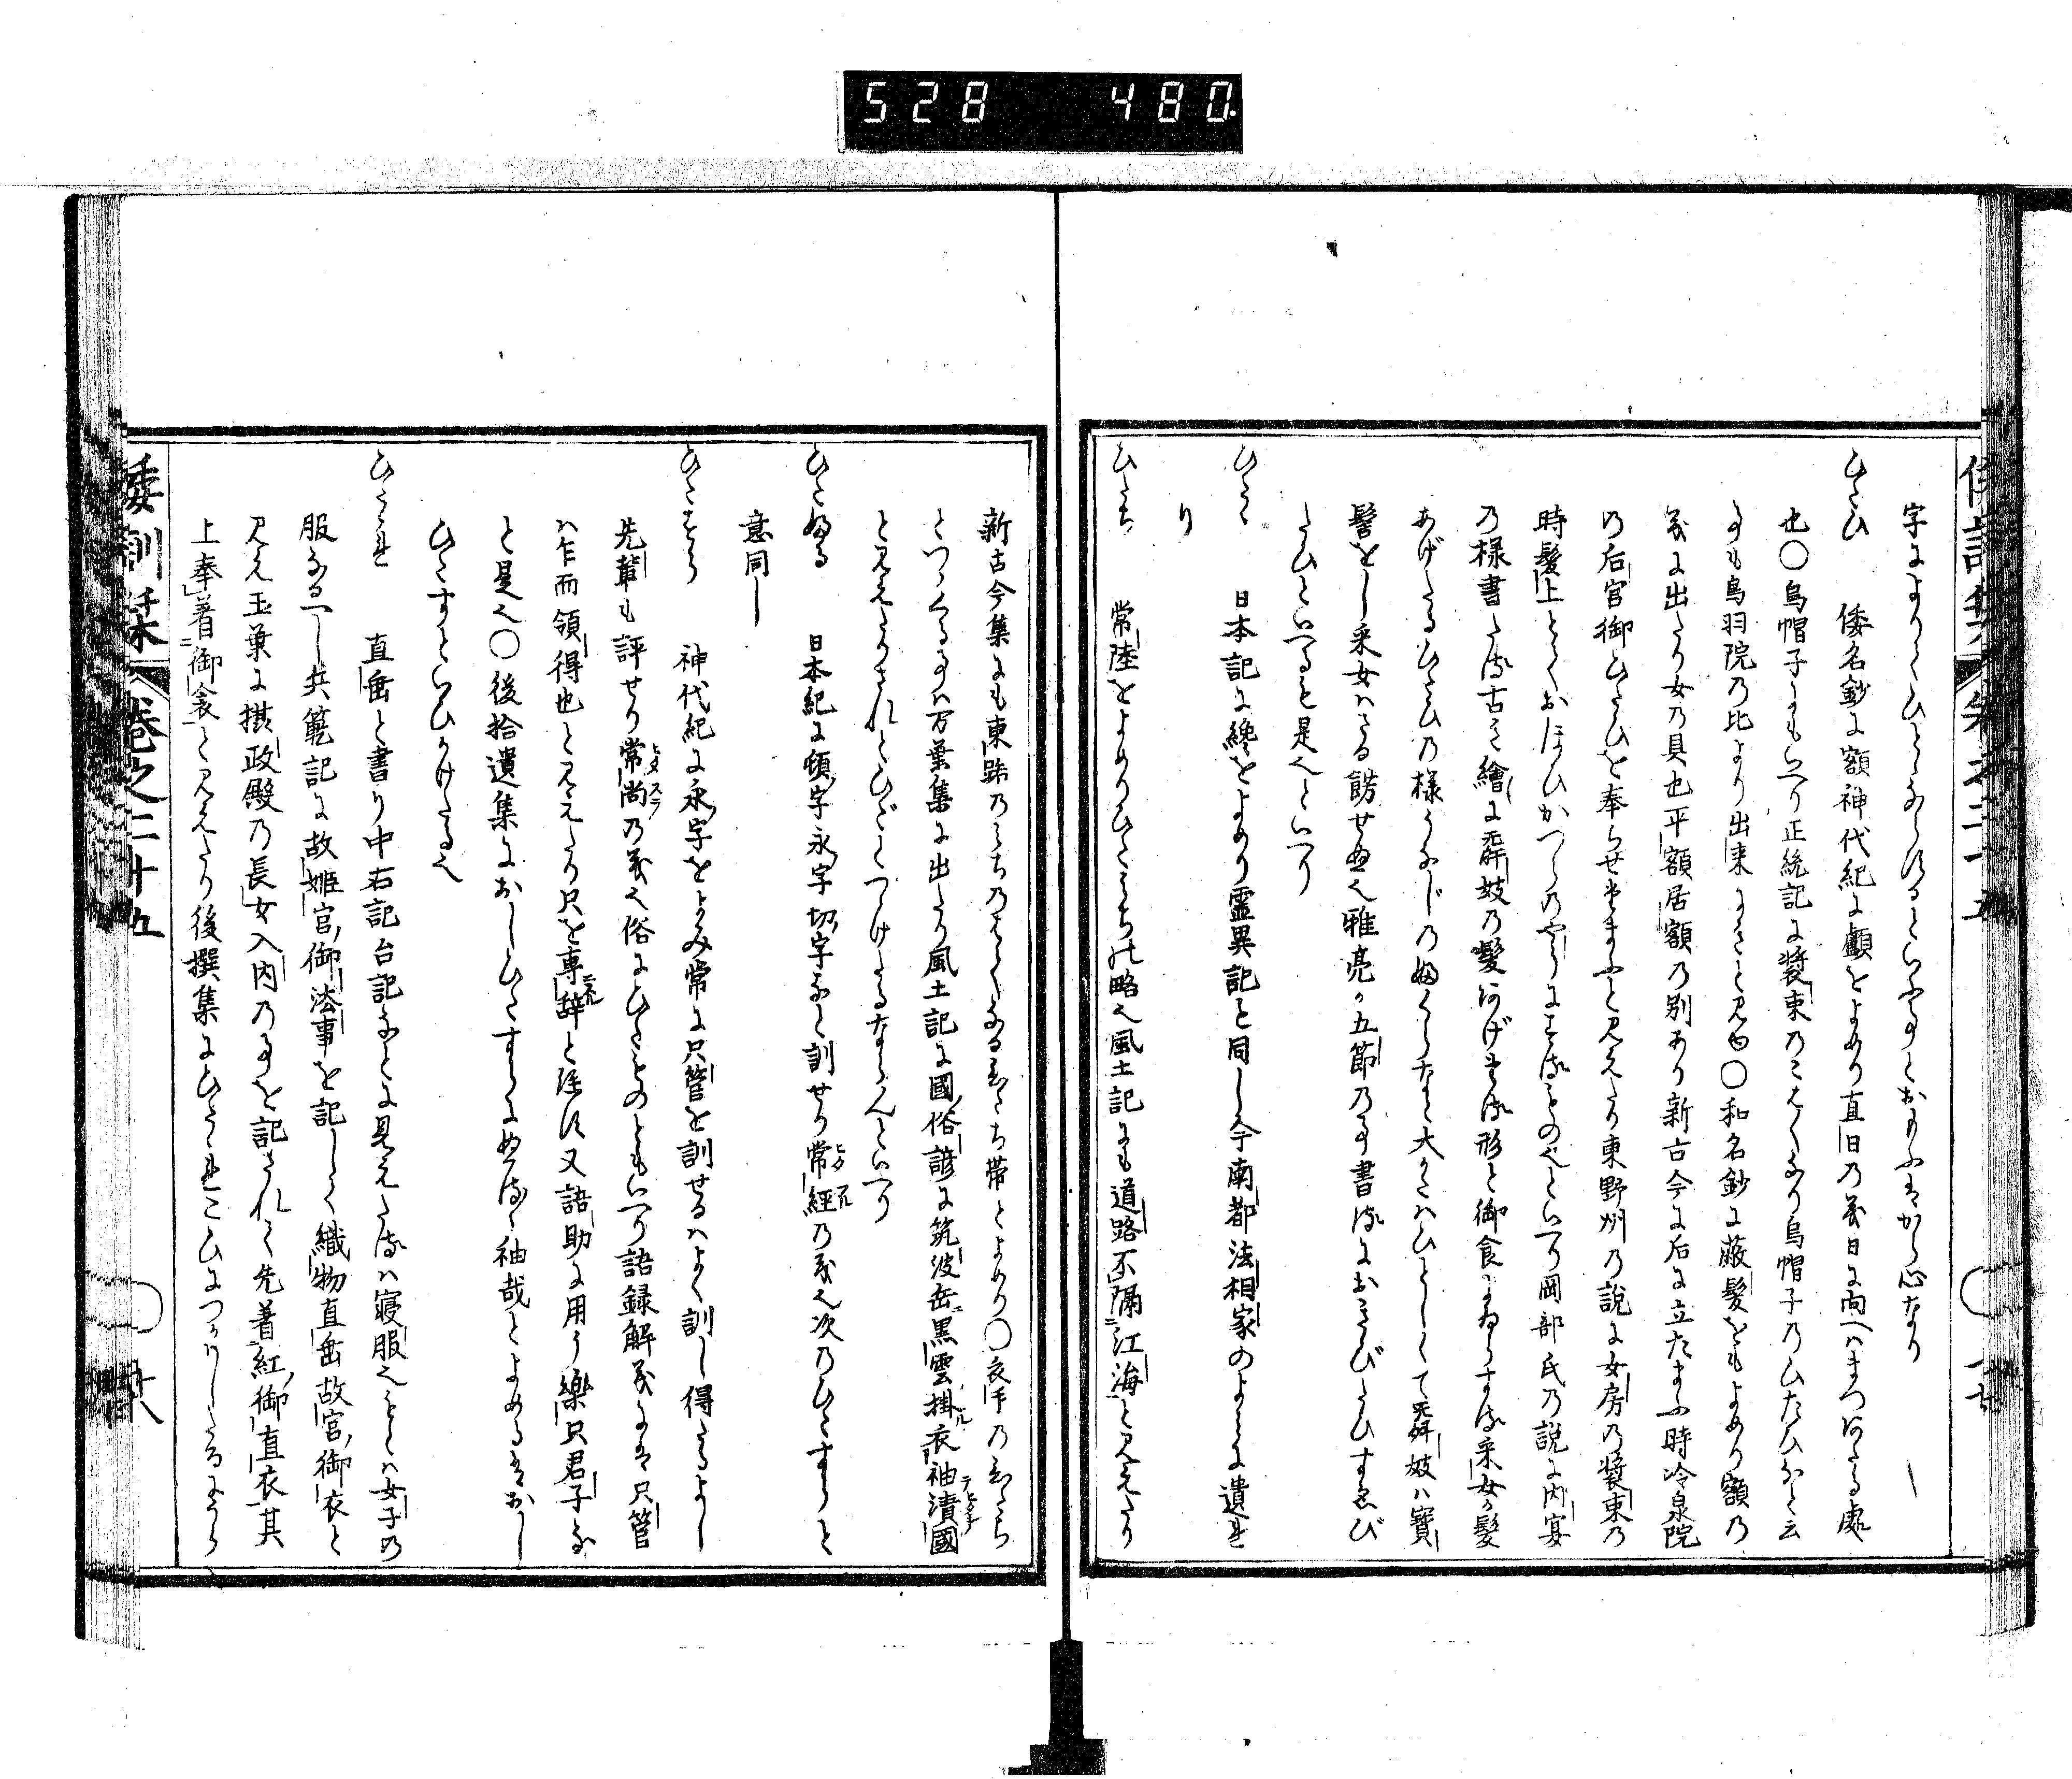 528 480
字によりてひとゝなるといふ事とおもふはから心なり
ひたひ 倭名鈔に額神代紀に顱をよめり直日の義日に向へはまつあたる處
也○烏帽子にもいへり正統記に装束のこはくなり烏帽子のひたひなと云
事も鳥羽院の比より出來にきと見ゆ○和名鈔に蔽髪をもよめり額の
義に出たり女の具也平額居額の別あり新古今に后に立たまふ時冷泉院
の后宮御ひたひを奉らせたまふと見えたり東野州の説に女房の装束の
時髪上とておほひかつらのやうにするものへといへり岡部氏の説に内宴
の様書たる古き繪に舞妓の髪あげたる形と御食まゐらする采女か髪
あげたるひたひの様うなじの
髻をし采女はさる餝せぬ也雅亮か五節の事書るにおきびたひすゑび
たひといへるも是也といへり
ひたゝ 日本記に纔をよめり靈異記も同し今南都法相家のよみに遺れ
り
ひたち 常陸をよめりひたみちの略也風土記にも道路不隔江海と見えたり
新古今集にも東路のみちのはてなるひたち帯とよめり○衣手のひたち
とつゝくる事は万葉集に出たり風土記に國俗諺に筑波岳黒雲掛衣袖漬國
と見えたりされとひだとつゝけたるならんといへり
ひたふる 日本紀に頓字永字切字なと訓せり常經の義也次のひたすらと
意同し
ひたすら 神代紀に永字をよみ常に只管を訓せるはよく訓し得たるよし
先輩も評せり常尚の義也俗にひたものともいへり語録解義には只管
は乍而領得也と見えたり只を專辞と注す又語助に用う樂只君子な
と是也○後拾遺集におしひたすらにぬるゝ袖哉とよめるはおし
ひたすといひかけたる也
ひたゝれ 直垂と書り中右記台記なとに見えたるは寝服也もとは女子の
服なるへし兵範記に故姫宮御法事を記して織物直垂故宮御衣と
見え玉葉に摂政殿の長女入内の事を記されて先著紅御直衣其
上奉著御衾と見えたり後撰集にひたゝれこひにつかはしたるにうら
倭訓栞 巻之二十五